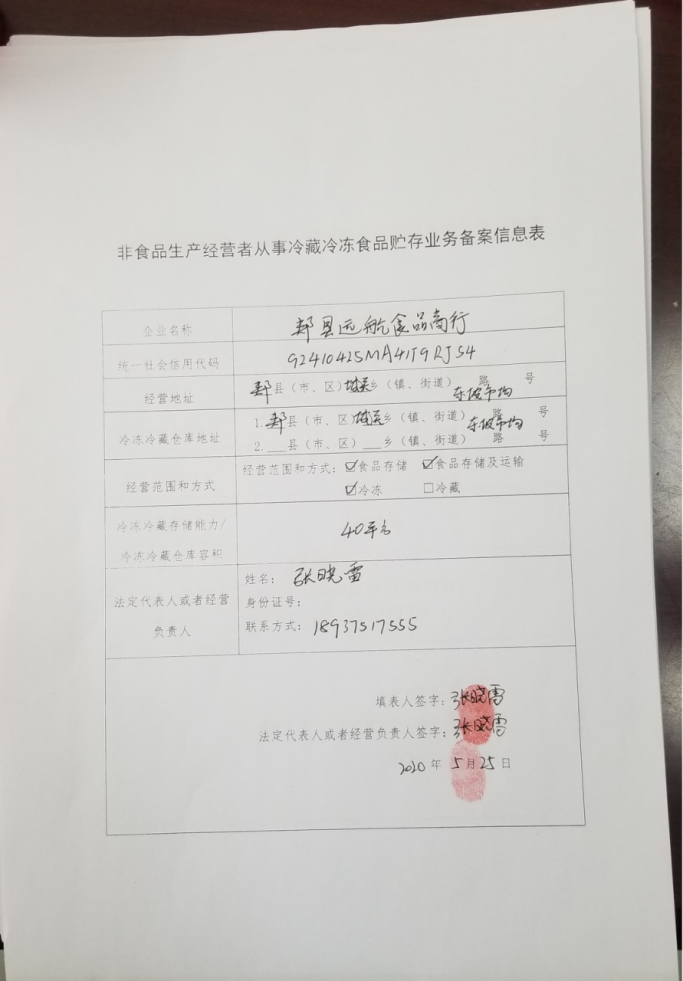 非食品生产经营者从事冷藏冷冻食品贮存业务备案信息表
企业名称 郏县远航食品商行
统一社会信用代码 92410425MA41T9RJ54
经营地址 郏县（市、区）城关乡（镇、街道）东坡市场路 号
冷冻冷藏仓库地址 1.郏县（市、区）城关乡（镇、街道）东坡市场路 号
2.___县（市、区）___乡（镇、街道） 路 号
经营范围和方式 经营范围和方式：☑食品存储 ☑食品存储及运输
☑冷冻 □冷藏
冷冻冷藏存储能力/
冷冻冷藏仓库容积 40平方
法定代表人或者经营
负责人
姓名：张晓雷
身份证号：
联系方式：18937517555
填表人签字：张晓雷
法定代表人或者经营负责人签字：张晓雷
2020年5月25日